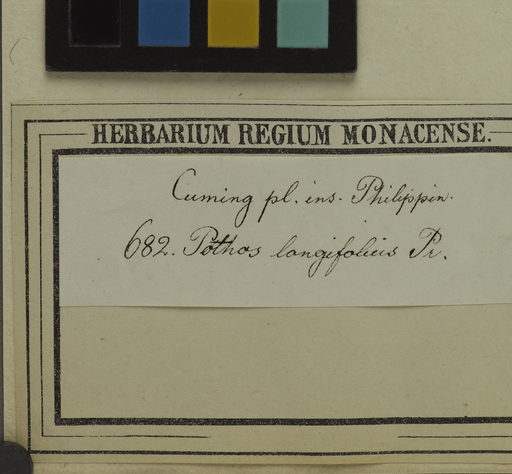 HERBARIUM REGIUM MONACENSE.
Cuming pl. ins. Philippin.
682. Pothos longifolius Pr.